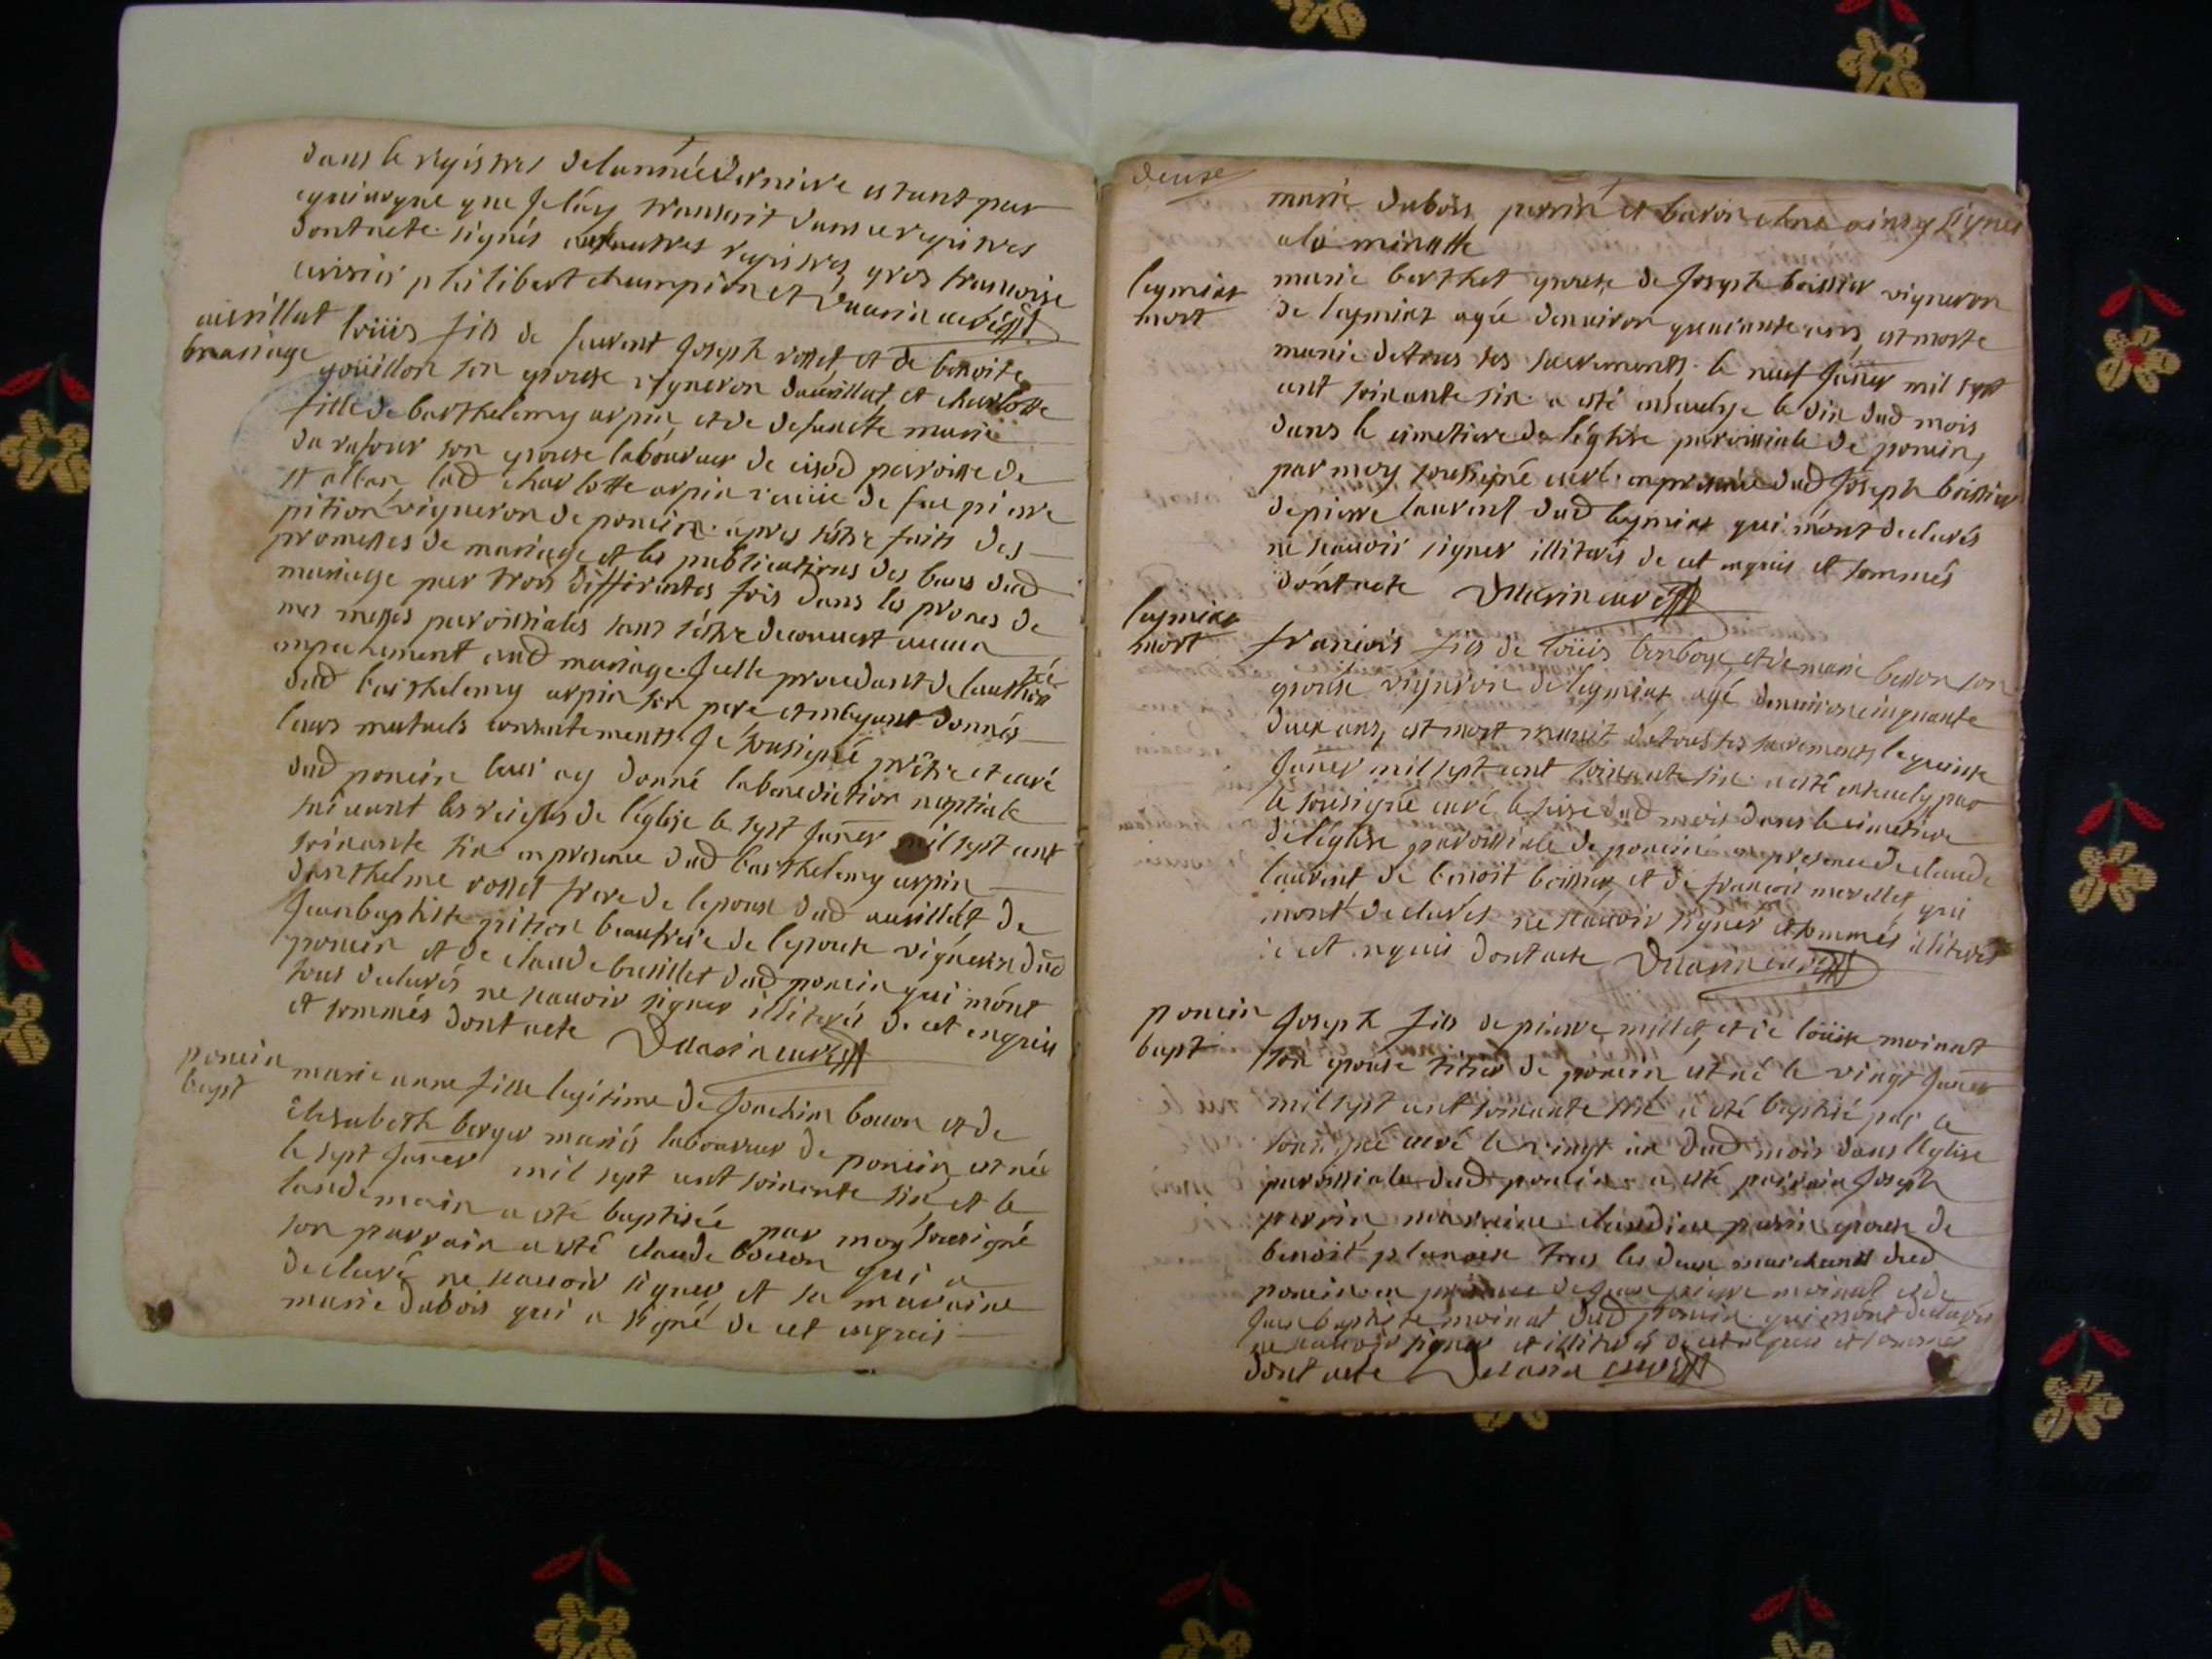 dans le régistres de lannée derniere estant par
que je lay transcrit dans ce registres
dontacte signés autres registres gros francoise
philibert champion et Duarin curé
merillat
bmariage
loüis fils de laurent Joseph rosset et de benoite
gouillon son epouse vigneron et charlotte
fille de barthelemy arpin et de defuncte marie
son epouse laboureur de parroisse de
st alban lad charlotte arpin veuve de feu pierre
pition vigneron de poncin apres sestre faits des
promesses de mariage et les publications des bans dud
mariage par trois differentes fois dans les prones de
mes messes paroissiales sans sestre decouvert aucun
empechement aud mariage. Icelle procedant de lauthorité
dud barthelemy arpin son pere et mayant donnés
leurs mutuels consentements. Je sousigné prêtre et curé
dud poncin leur ay donné la benediction nuptiale
suivant les reigles de léglise le sept Janer mil sept cent
soixante six en presence dud barthelemy arpin
danthelme rosset frere de lepoux dud de
Jeanbaptiste pition beaufrere de lepouse vigneron dud
poncin et de claude dud poncin qui mont
tous declarés ne scauoir signer illiterés de cet enquis
et sommés dont acte Duarin curé
poncin
bapt
marie anne fille legitime de Joachim bouon et de
Elisabeth berger mariés laboureur de poncin est née
le sept Janer mil sept cent soixante six et le
landemain a esté baptisée par moy sousigné
son parrain a esté claude bouon qui a
declaré ne scauoir signer et sa maraine
marie dubois qui a signé de cet enquis
deuxe
marie dubois perrin et baron ainsy signés
ala minutte
leymiat
mort
marie berthet epouse de Joseph boissier vigneron
de leymiat agée denuiron quarante ans est morte
munie detous ses sacrements. le neuf Janer mil sept
cent soixante six a esté enseuelye le dix dud mois
dans le cimetiere de léglise paroissiale de poncin
par moy sousigné curé en presence dud Joseph boissier
depierre laurent dud leymiat qui mont declarés
ne scauoir signer illiterés de cet enquis et sommés
dont acte Duarin curé
leymiat
mort
francois fils de loüis et de marie besson son
epouse vigneron de leymiat agé denuiron cinquante
deux ans est mort munit detous ses sacrements le quinse
Janer mil sept cent soixante six a esté enseuely par
le sousigné curé le seise dud mois dans le cimetiere
de leglise paroissiale de poncin en presence de claude
laurent de benoit boissier et de francois merellet qui
mont declarés ne scauoir signer et sommés illiterés
de cet enquis dont acte Duarin curé
poncin
bapt
Joseph fils de pierre millet et de loüise moinat
son epouse titier de poncin est né le vingt Janer
mil sept cent soixante six a esté baptisé par le
sousigné curé le vingt un dud mois dans lEglise
paroissiale dud poncin a esté parrain Joseph
perrin marraine claudine perrin epouse de
benoit planaise tous les deux marchands dud
poncin en presence de Jean pierre moinat et de
Jean baptiste moinat dud poncin qui mont declarés
ne scauoir signer et illiterés de cet enquis et sommés
dont acte Duarin curé